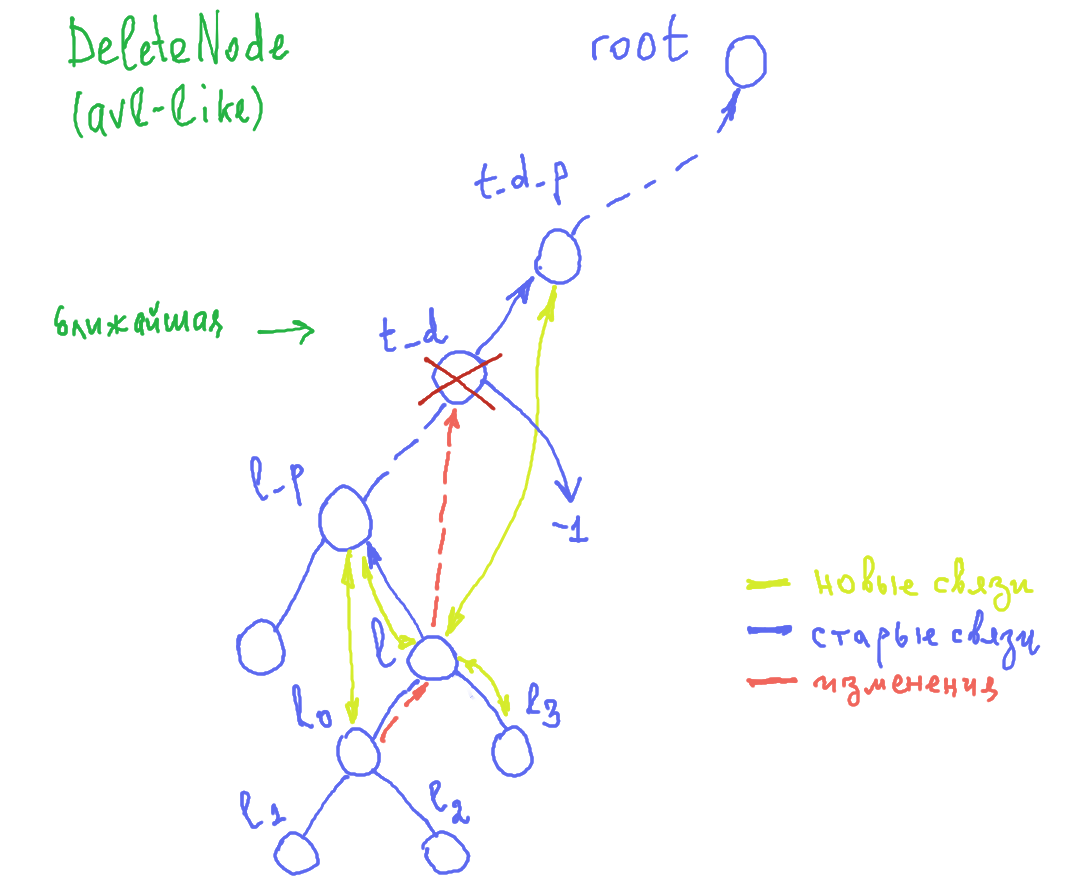 DeleteNode
(avl-like)
root
t_d_p
ближайшая →
t_d
l_p
-1
l
l0
l3
l1
l2
новые связи
старые связи
изменения